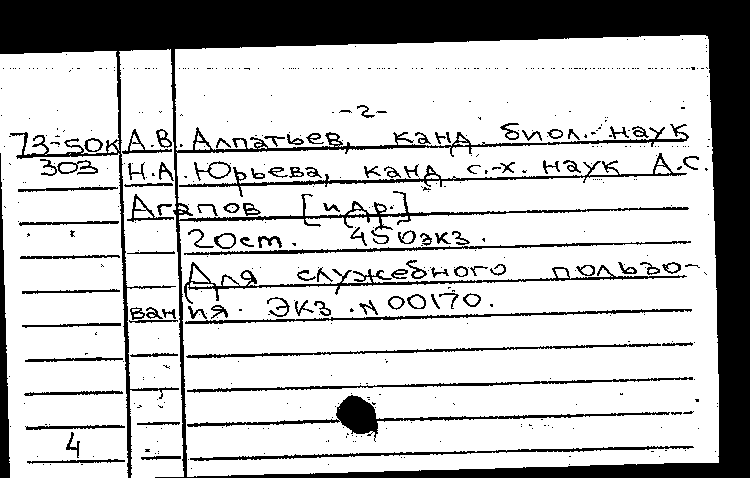 -2-
73-50к А.В. Алпатьев, канд. биол. наук
303 Н.А. Юрьева, канд. с.-х. наук А.С.
Агапов [и др.]
20 ст. 450 экз.
Для служебного пользо-
вания. Экз. N 00170.
4